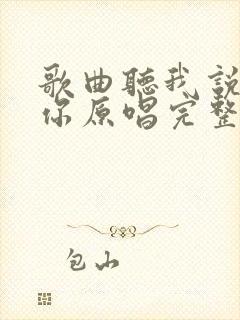 歌曲聽我說
你原唱完整
包山